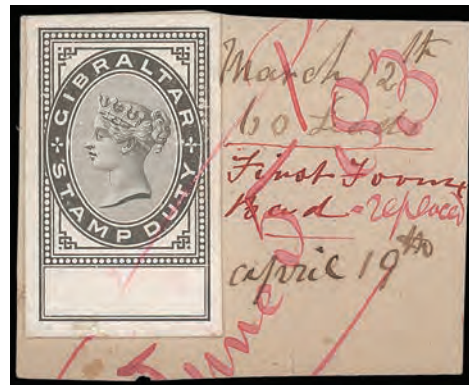 GIBRALTAR
STAMP DUTY
March 12th
60 Leads
First Forme
Bad - replaced
april 19th
June 5/93